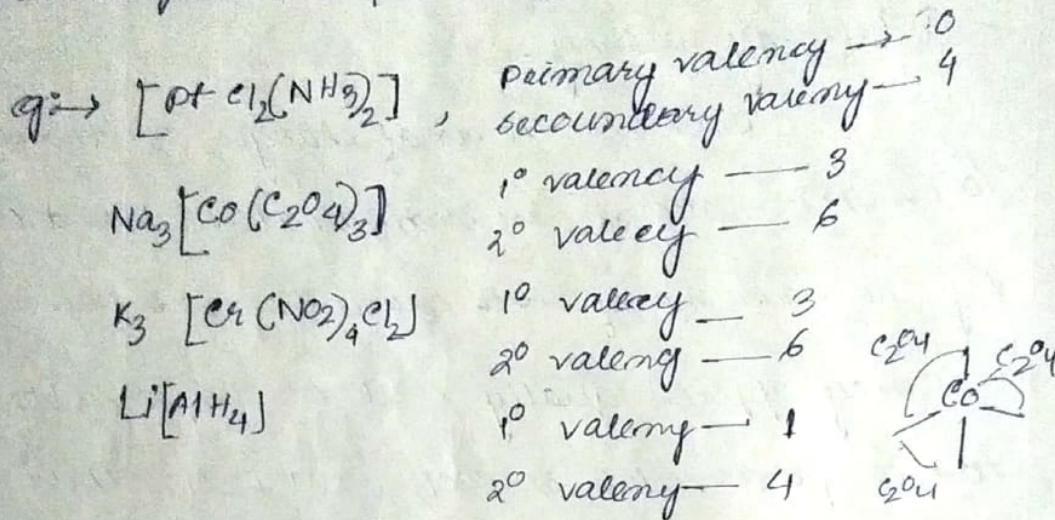 eg:→ [Pt Cl2(NH3)2] , Primary valency → 0
secoundary valency — 4
1° valency — 3
Na3[Co(C2O4)3]
2° valecy — 6
K3 [Cr(NO2)4Cl2] 1° valecy — 3
2° valeny — 6
Li[AlH4]
1° valemy — 1
2° valeny — 4
C2O4 C2O4
Co
C2O4